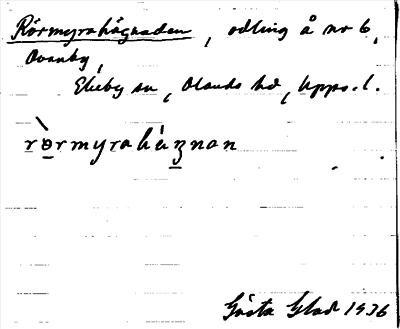 Rörmyrahägnaden, odling å nr 6,
Ovanby,
Ekeby sn, Olands hd, Upps. l.
rörmyrahäʒnan
Gösta Glad 1936